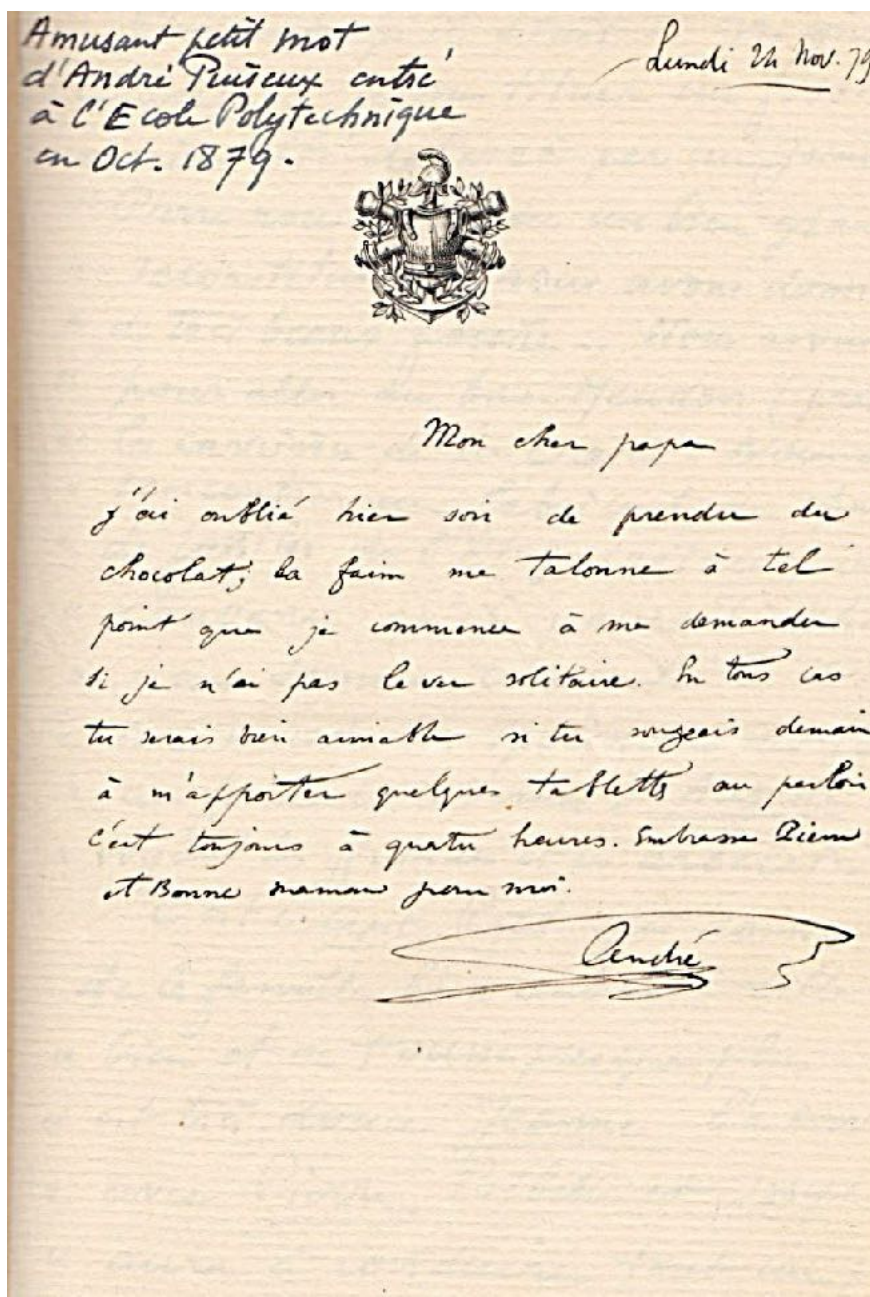 Amusant petit mot
d'André Puiseux entré
à l'Ecole Polytechnique
en Oct. 1879.
Lundi 24 Nov. 79
Mon cher papa
j'ai oublié hier soir de prendre du
chocolat; la faim me talonne à tel
point que je commence à me demander
si je n'ai pas le ver solitaire. En tous cas
tu serais bien aimable si tu songeais demain
à m'apporter quelques tablettes au parloir
c'est toujours à quatre heures. Embrasse Pierre
et Bonne maman pour moi.
André